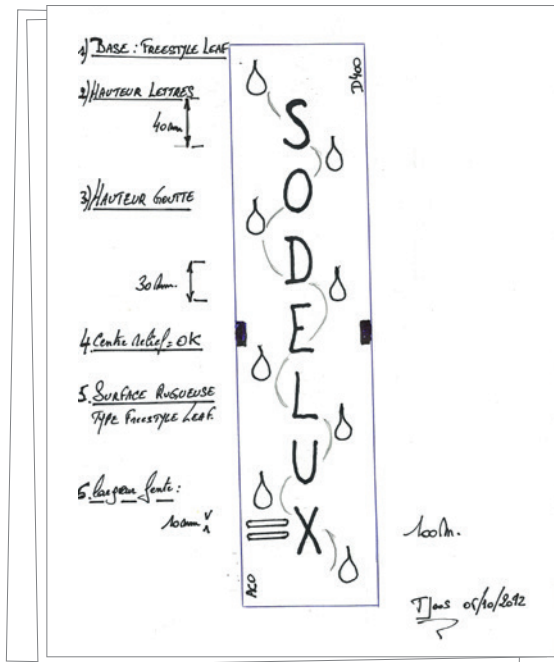 1) BASE : FREESTYLE LEAF
2) HAUTEUR LETTRES
40mm
3) HAUTEUR GOUTTE
30mm.
4. Centre relief = OK
5. SURFACE RUGUEUSE
TYPE FREESTYLE LEAF.
6. largeur fente :
10mm
D400
S
O
D
E
L
U
X
ACO
100m.
05/10/2012